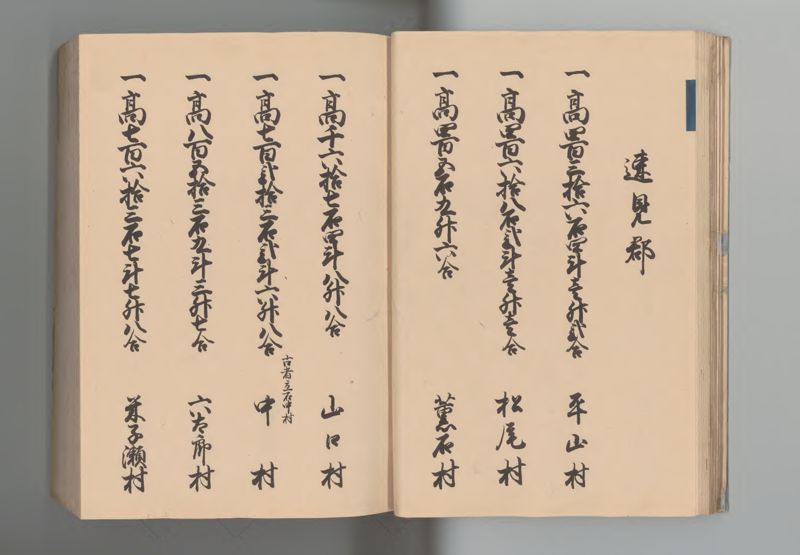 速見郡
一高四百三拾六石四斗壱升弐合 平山村
一高四百六拾八石弐斗壱升壱合 松尾村
一高四百五石九升六合 薫石村
一高千六拾七石四斗八升八合 山口村
一高七百弐拾三石弐斗六升八合 中村
古者立石中村
一高八百五拾三石五斗三升七合 六太郎村
一高七百六拾三石七斗七升八合 米子瀬村